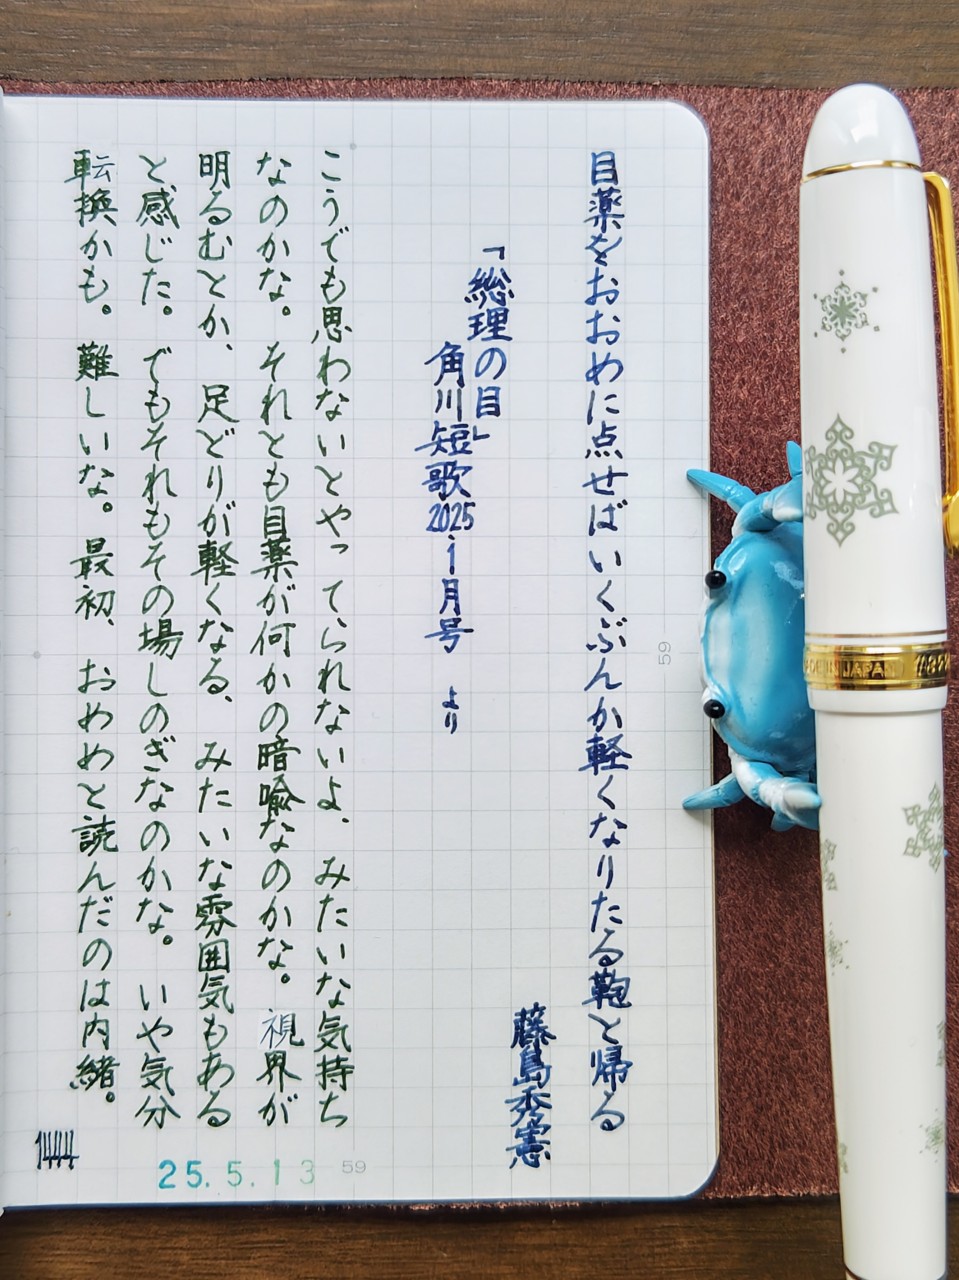 目薬をおおめに点せばいくぶんか軽くなりたる鞄と帰る
藤島秀憲
「総理の目」
角川短歌2025.1月号 より
こうでも思わないとやってられないよ、みたいな気持ち
なのかな。それとも目薬が何かの暗喩なのかな。視界が
明るむとか、足どりが軽くなる、みたいな雰囲気もある
と感じた。でもそれもその場しのぎなのかな。いや気分
転換かも。難しいな。最初、おめめと読んだのは内緒。
25.5.13
59
59
JAPAN